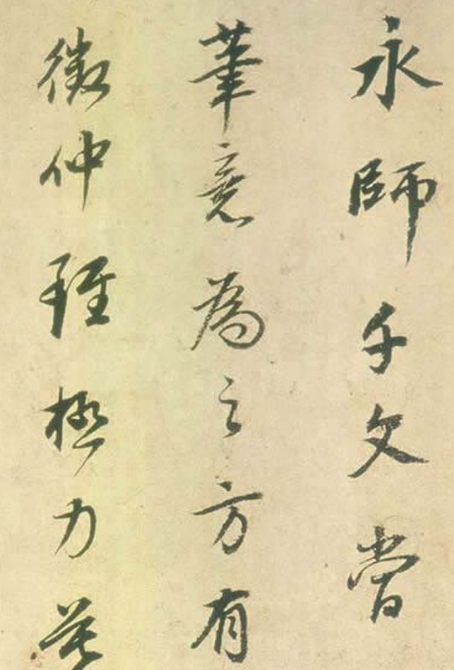 永師千文
筆意為之方有
徵仲雖極力